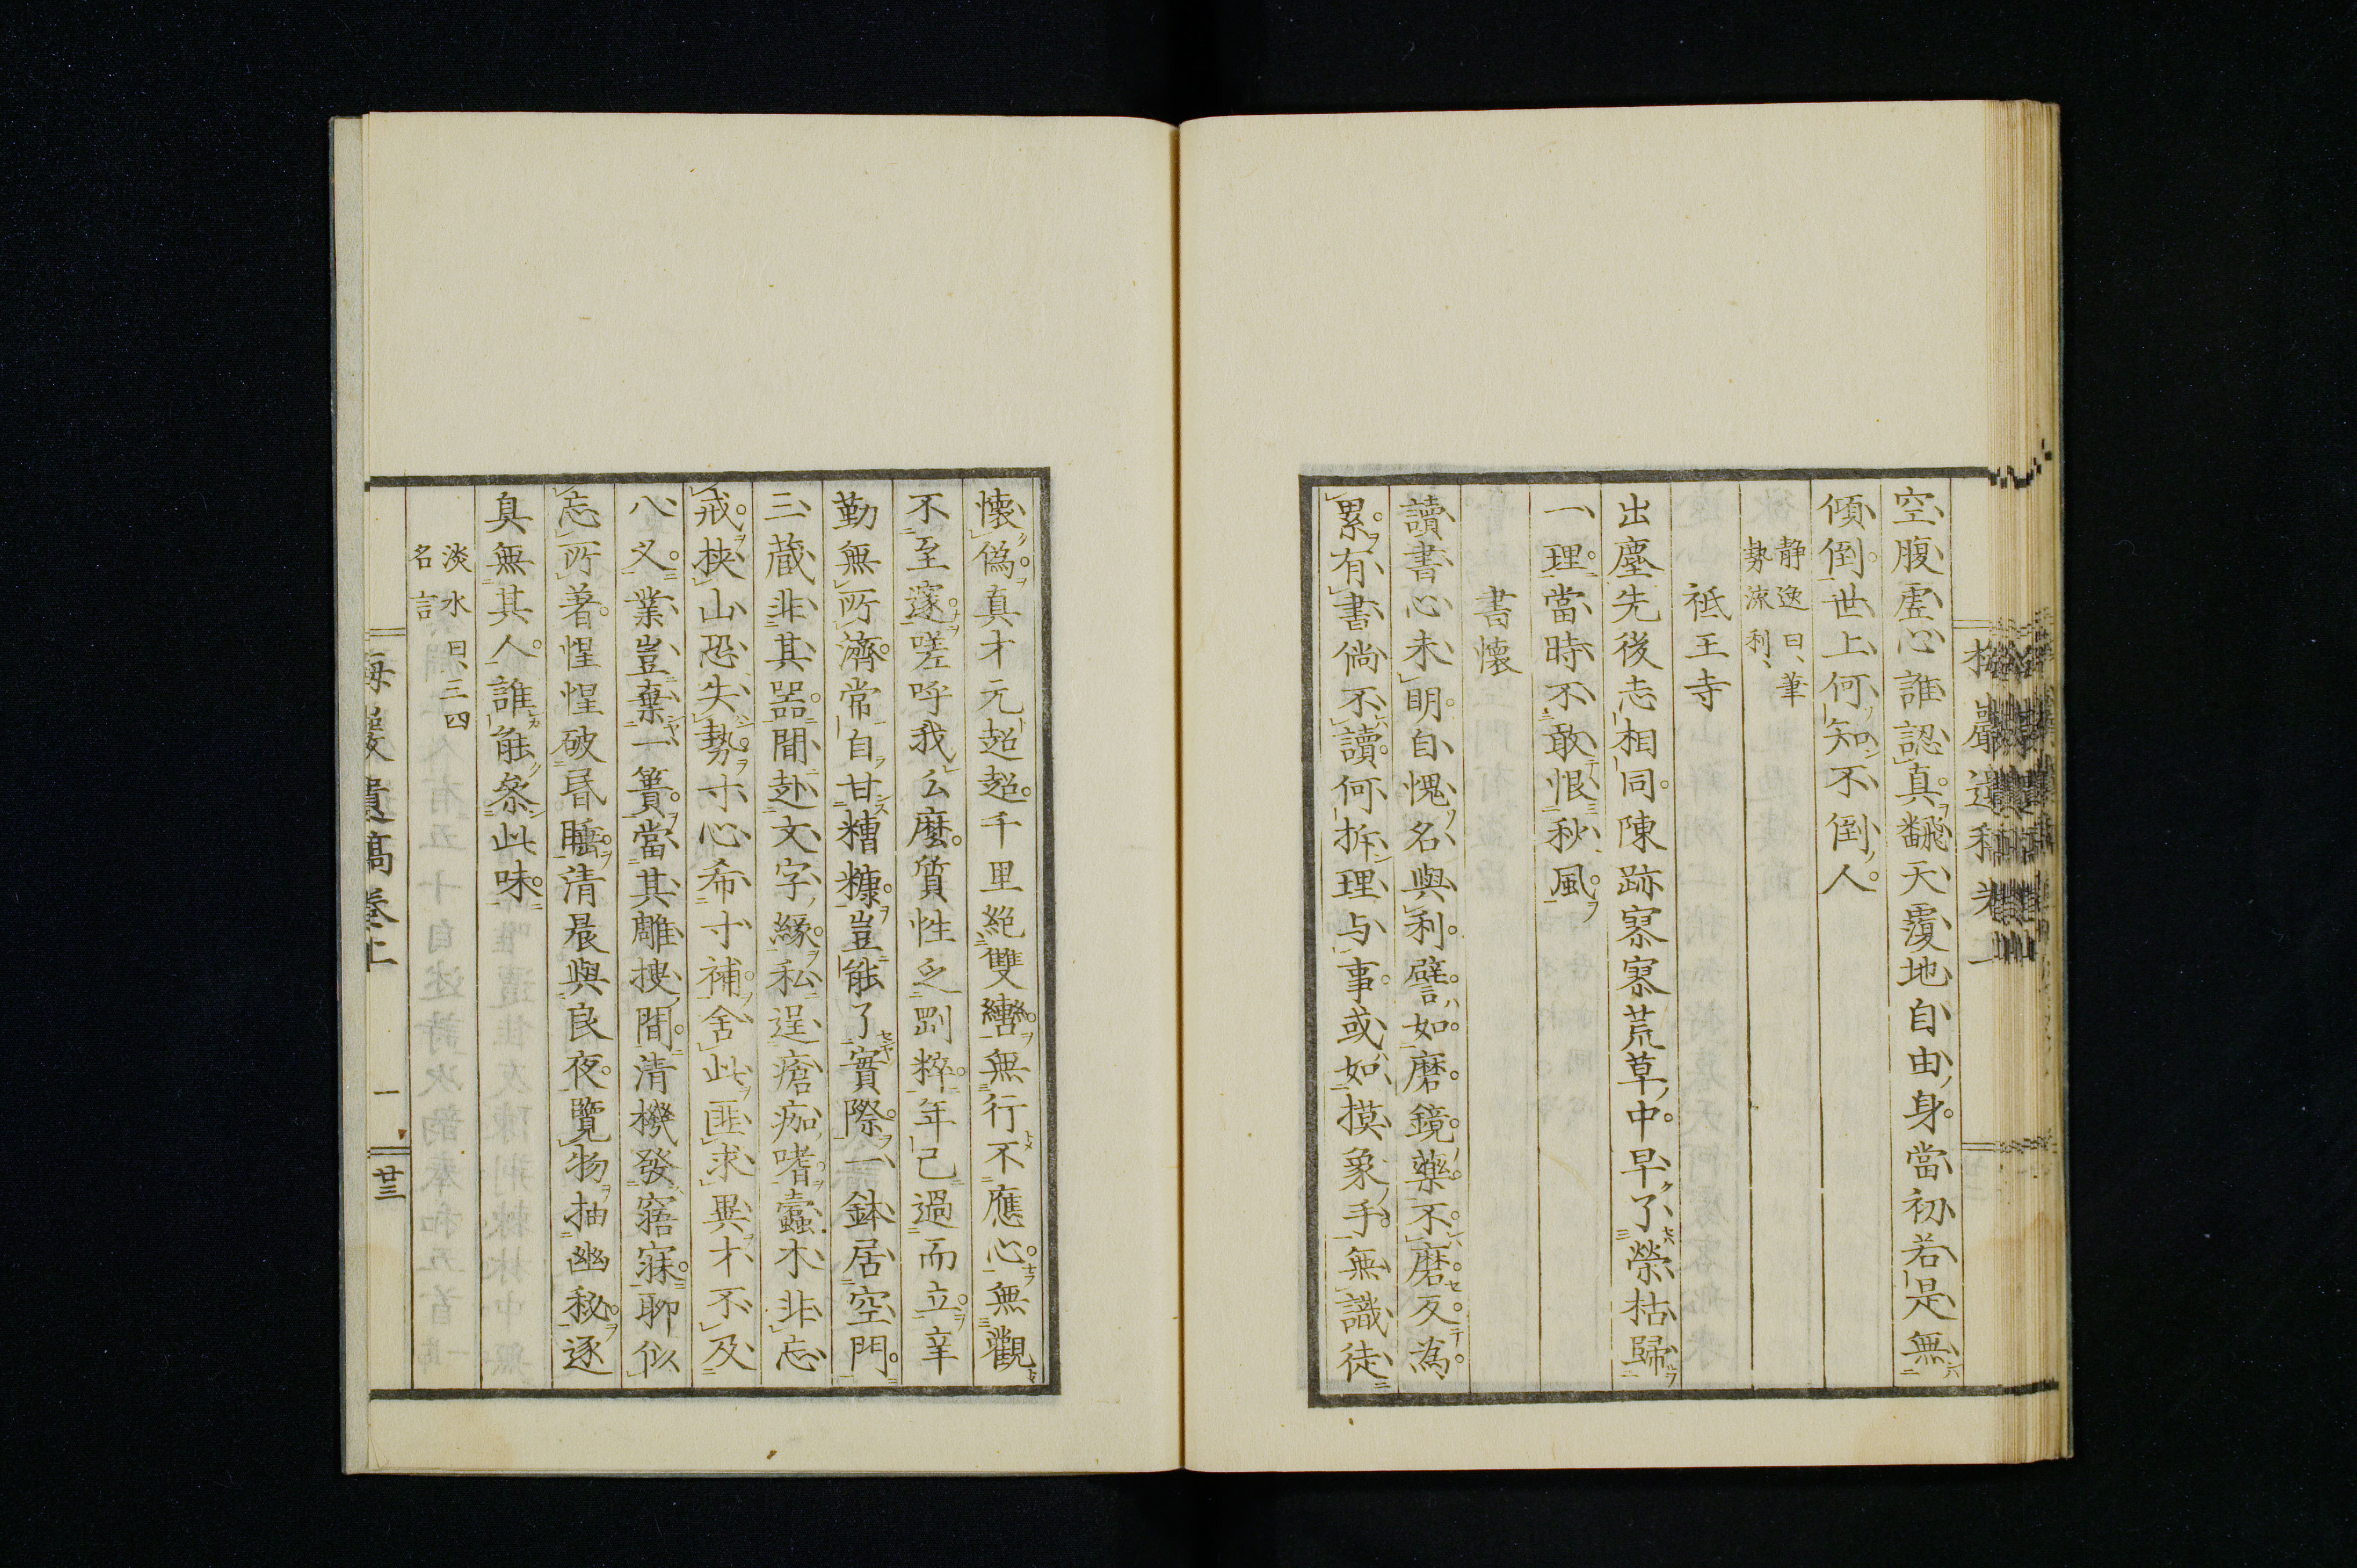 空腹虚心誰認真飜天覆地自由身當初若是無
傾倒世上何知不倒人
静逸曰、筆
勢流利、
祇王寺
出塵先後志相同陳跡寥寥荒草中早了榮枯歸
一理當時不敢恨秋風
書懐
讀書心未明自愧名與利譬如磨鏡藥不磨反為
累有書尚不讀何拆理与事或如摸象手無識徒
懐偽真才元超超千里絶雙轡無行不應心無觀
不至邃嗟呼我么麼質性乏剛粹年已過而立辜
勤無所濟常自甘糟糠豈能了實際一鉢居空門
三藏非其器間赴文字縁私逞瘡痂嗜蠧木非忘
戒挾山恐失勢寸心希寸補舍此匪求異才不及
八叉業豈棄一簣當其雕搜間清機發寤寐聊似
忘所著惺惺破昏睡清晨與良夜覽物抽幽秘逐
真無其人誰能叅此味
淡水曰、三四
名言
梅巖遺稿卷上
廿三